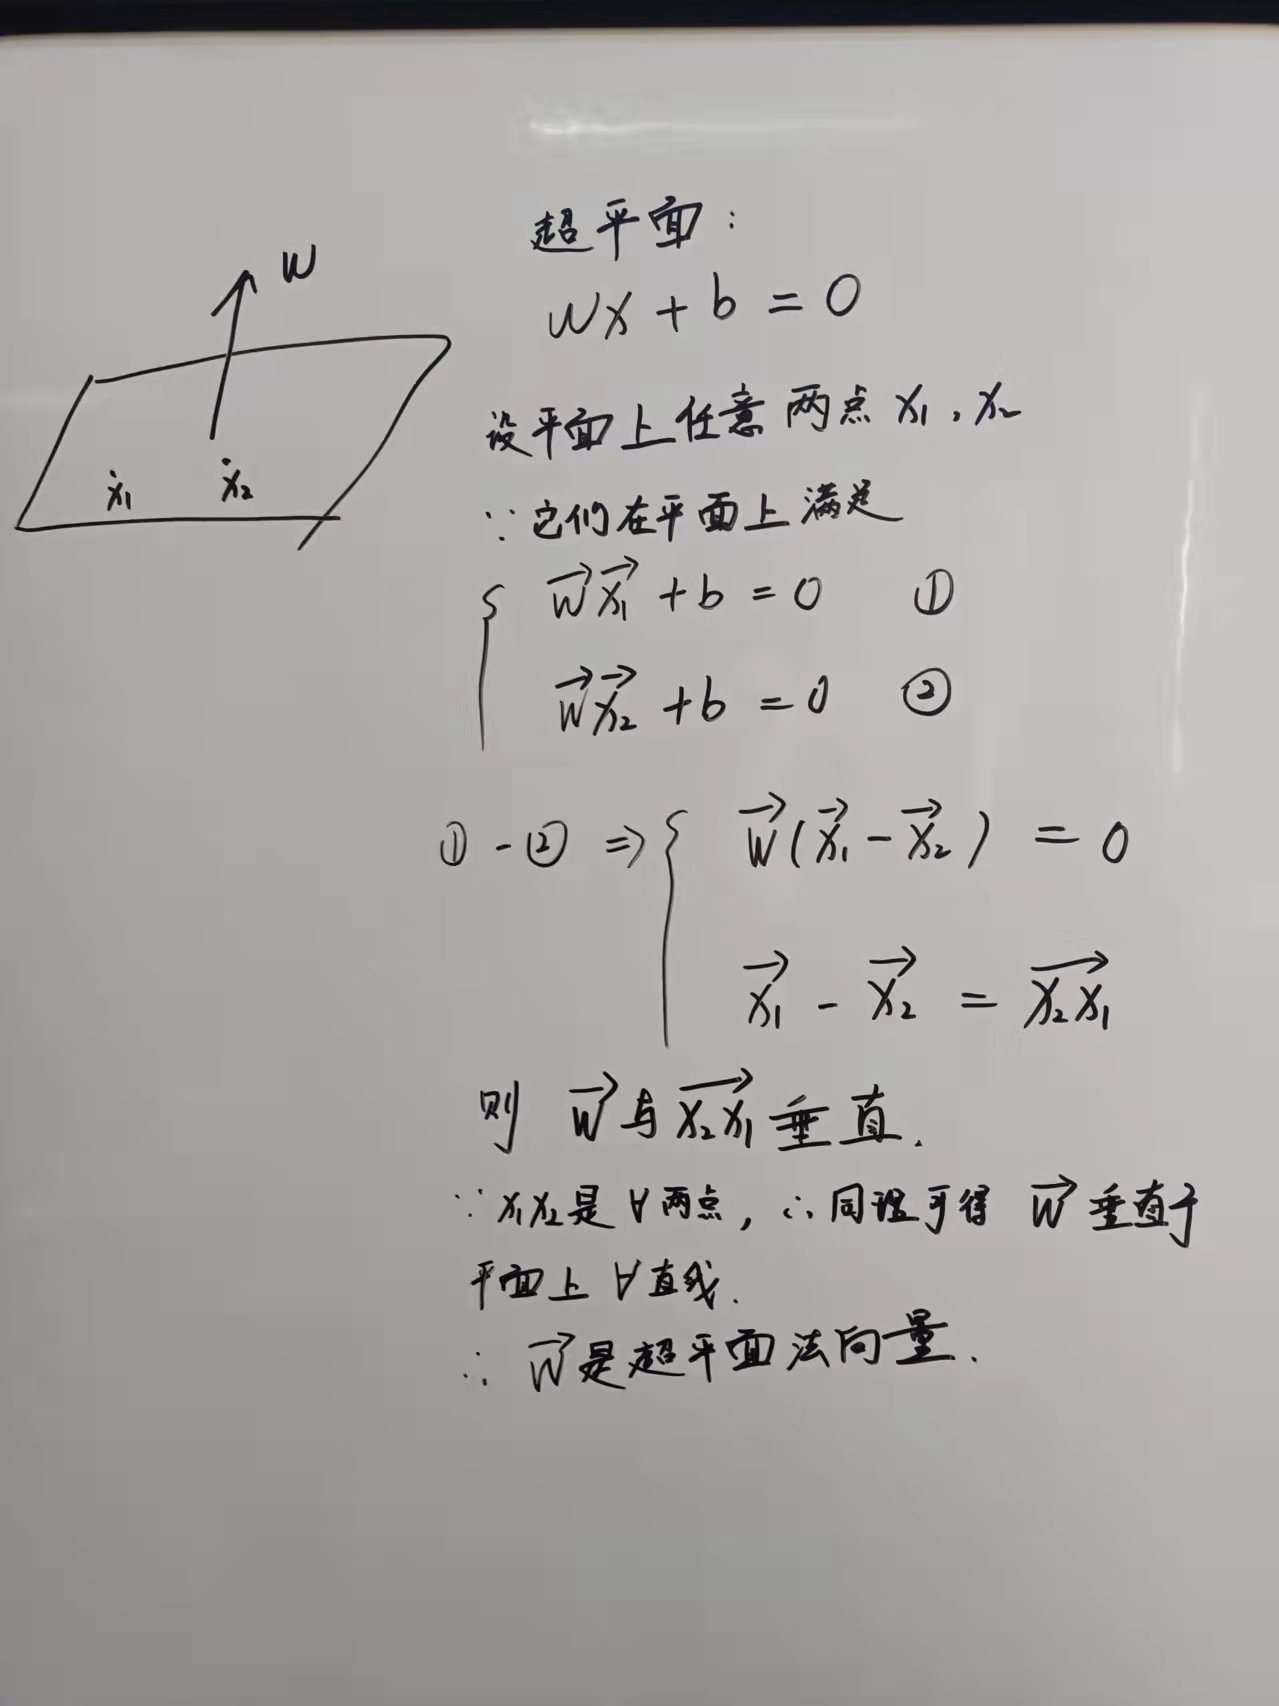 超平面:
wx + b = 0
W
设平面上任意两点 x₁, x₂
x₁ x₂
∵它们在平面上满足
{ w⃗x⃗₁ + b = 0 ①
w⃗x⃗₂ + b = 0 ②
① - ② ⇒ { w⃗(x⃗₁ - x⃗₂) = 0
x⃗₁ - x⃗₂ = \overrightarrow{x₂x₁}
则 w⃗与\overrightarrow{x₂x₁}垂直.
∵x₁x₂是∀两点, ∴同理可得 w⃗ 垂直于
平面上∀直线.
∴ w⃗是超平面法向量.